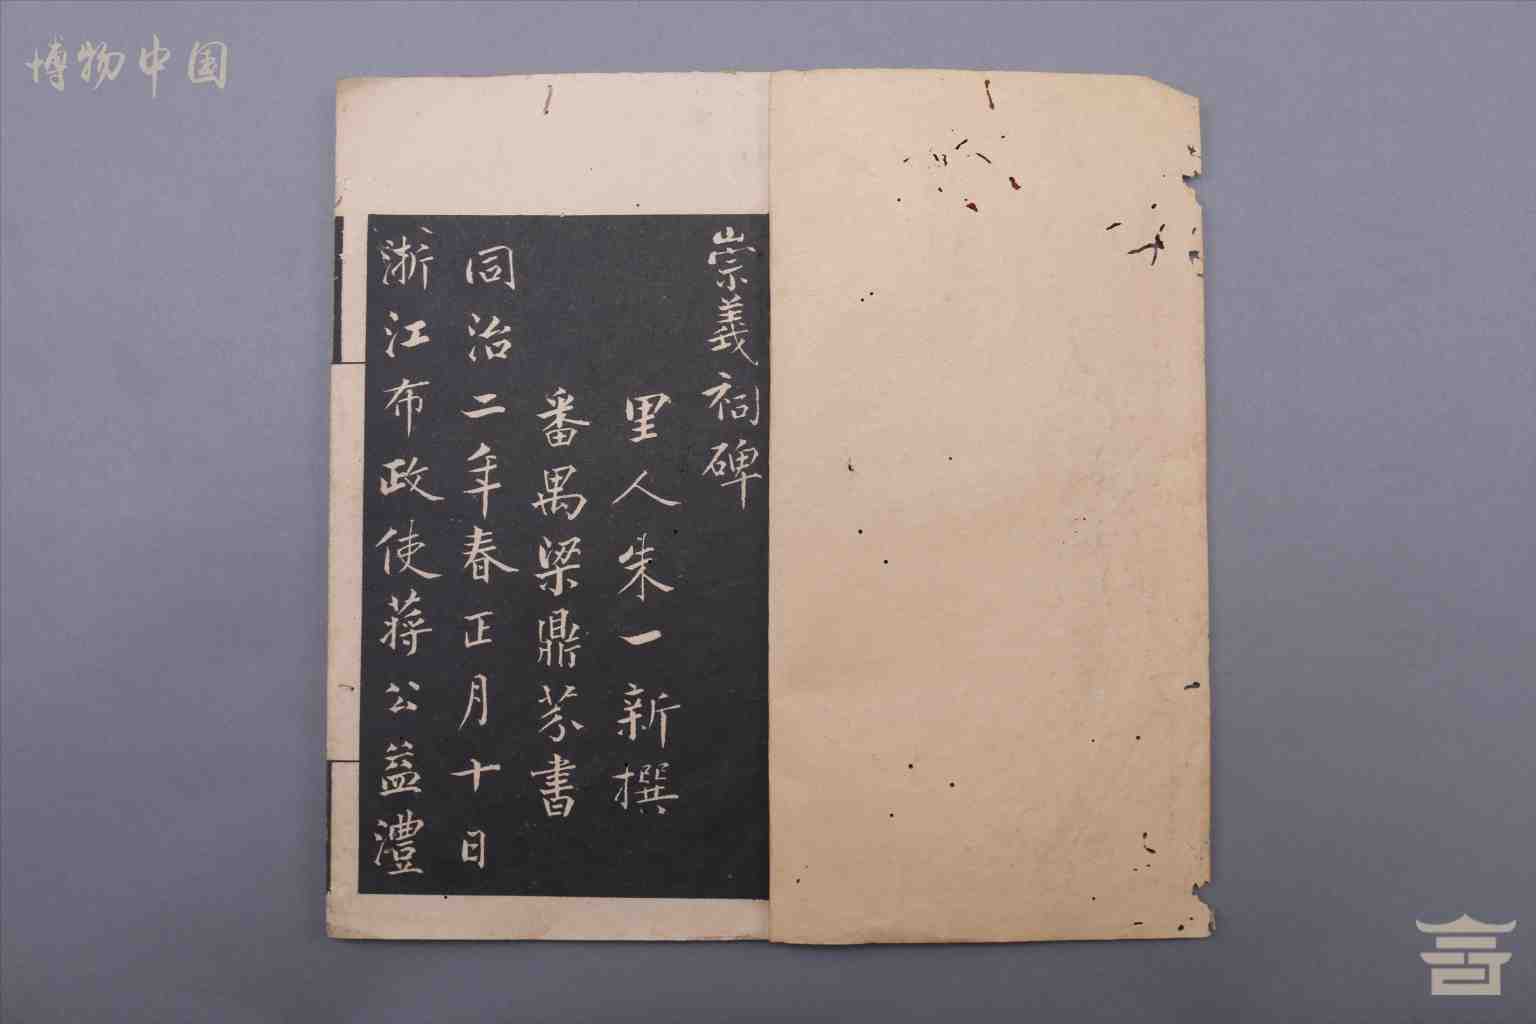 博物中国
崇義祠碑
里人朱一新撰
番禺梁鼎芬書
同治二年春正月十日
浙江布政使蔣公益澧